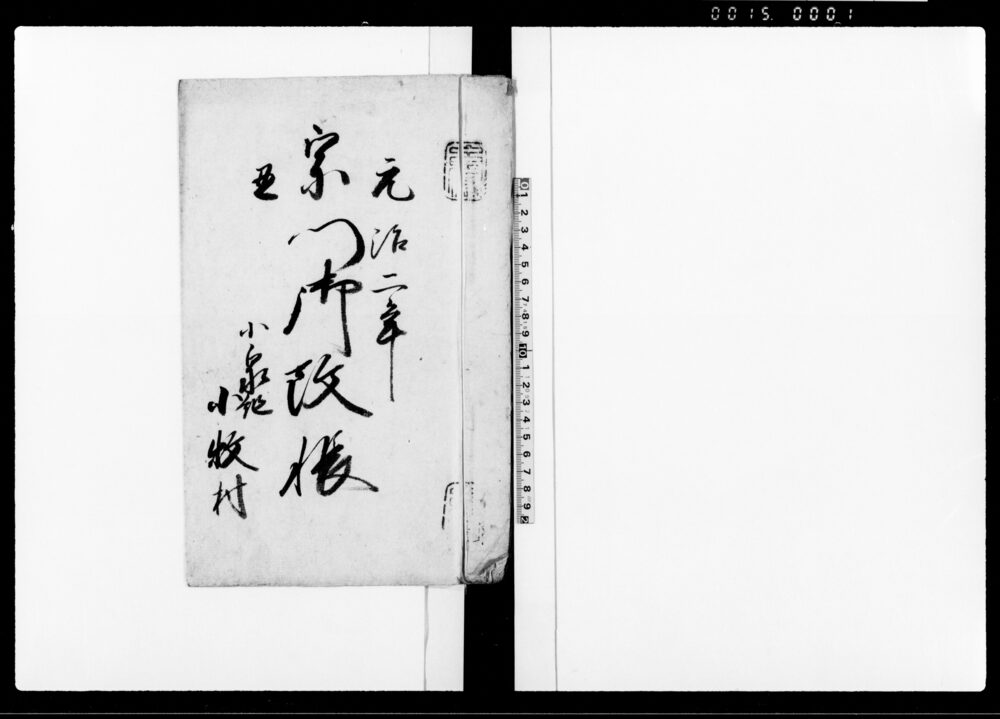 0015. 0001
元治二年
宗門御改帳
丑
小泉
小牧村
0 1 2 3 4 5 6 7 8 9 10 1 2 3 4 5 6 7 8 9 2